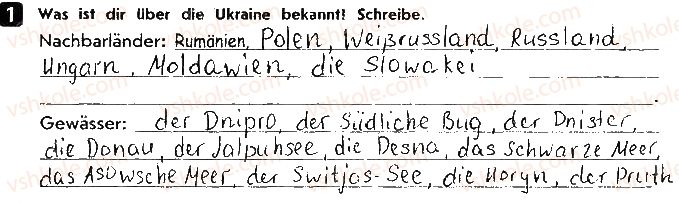 1 Was ist dir über die Ukraine bekannt! Schreibe.
Nachbarländer: Rumänien, Polen, Weißrussland, Russland,
Ungarn, Moldawien, die Slowakei
Gewässer: der Dnipro, der Südliche Bug, der Dnister,
die Donau, der Jalpuhsee, die Desna, das Schwarze Meer,
das Asowsche Meer, der Switjas-See, die Horyn, der Pruth